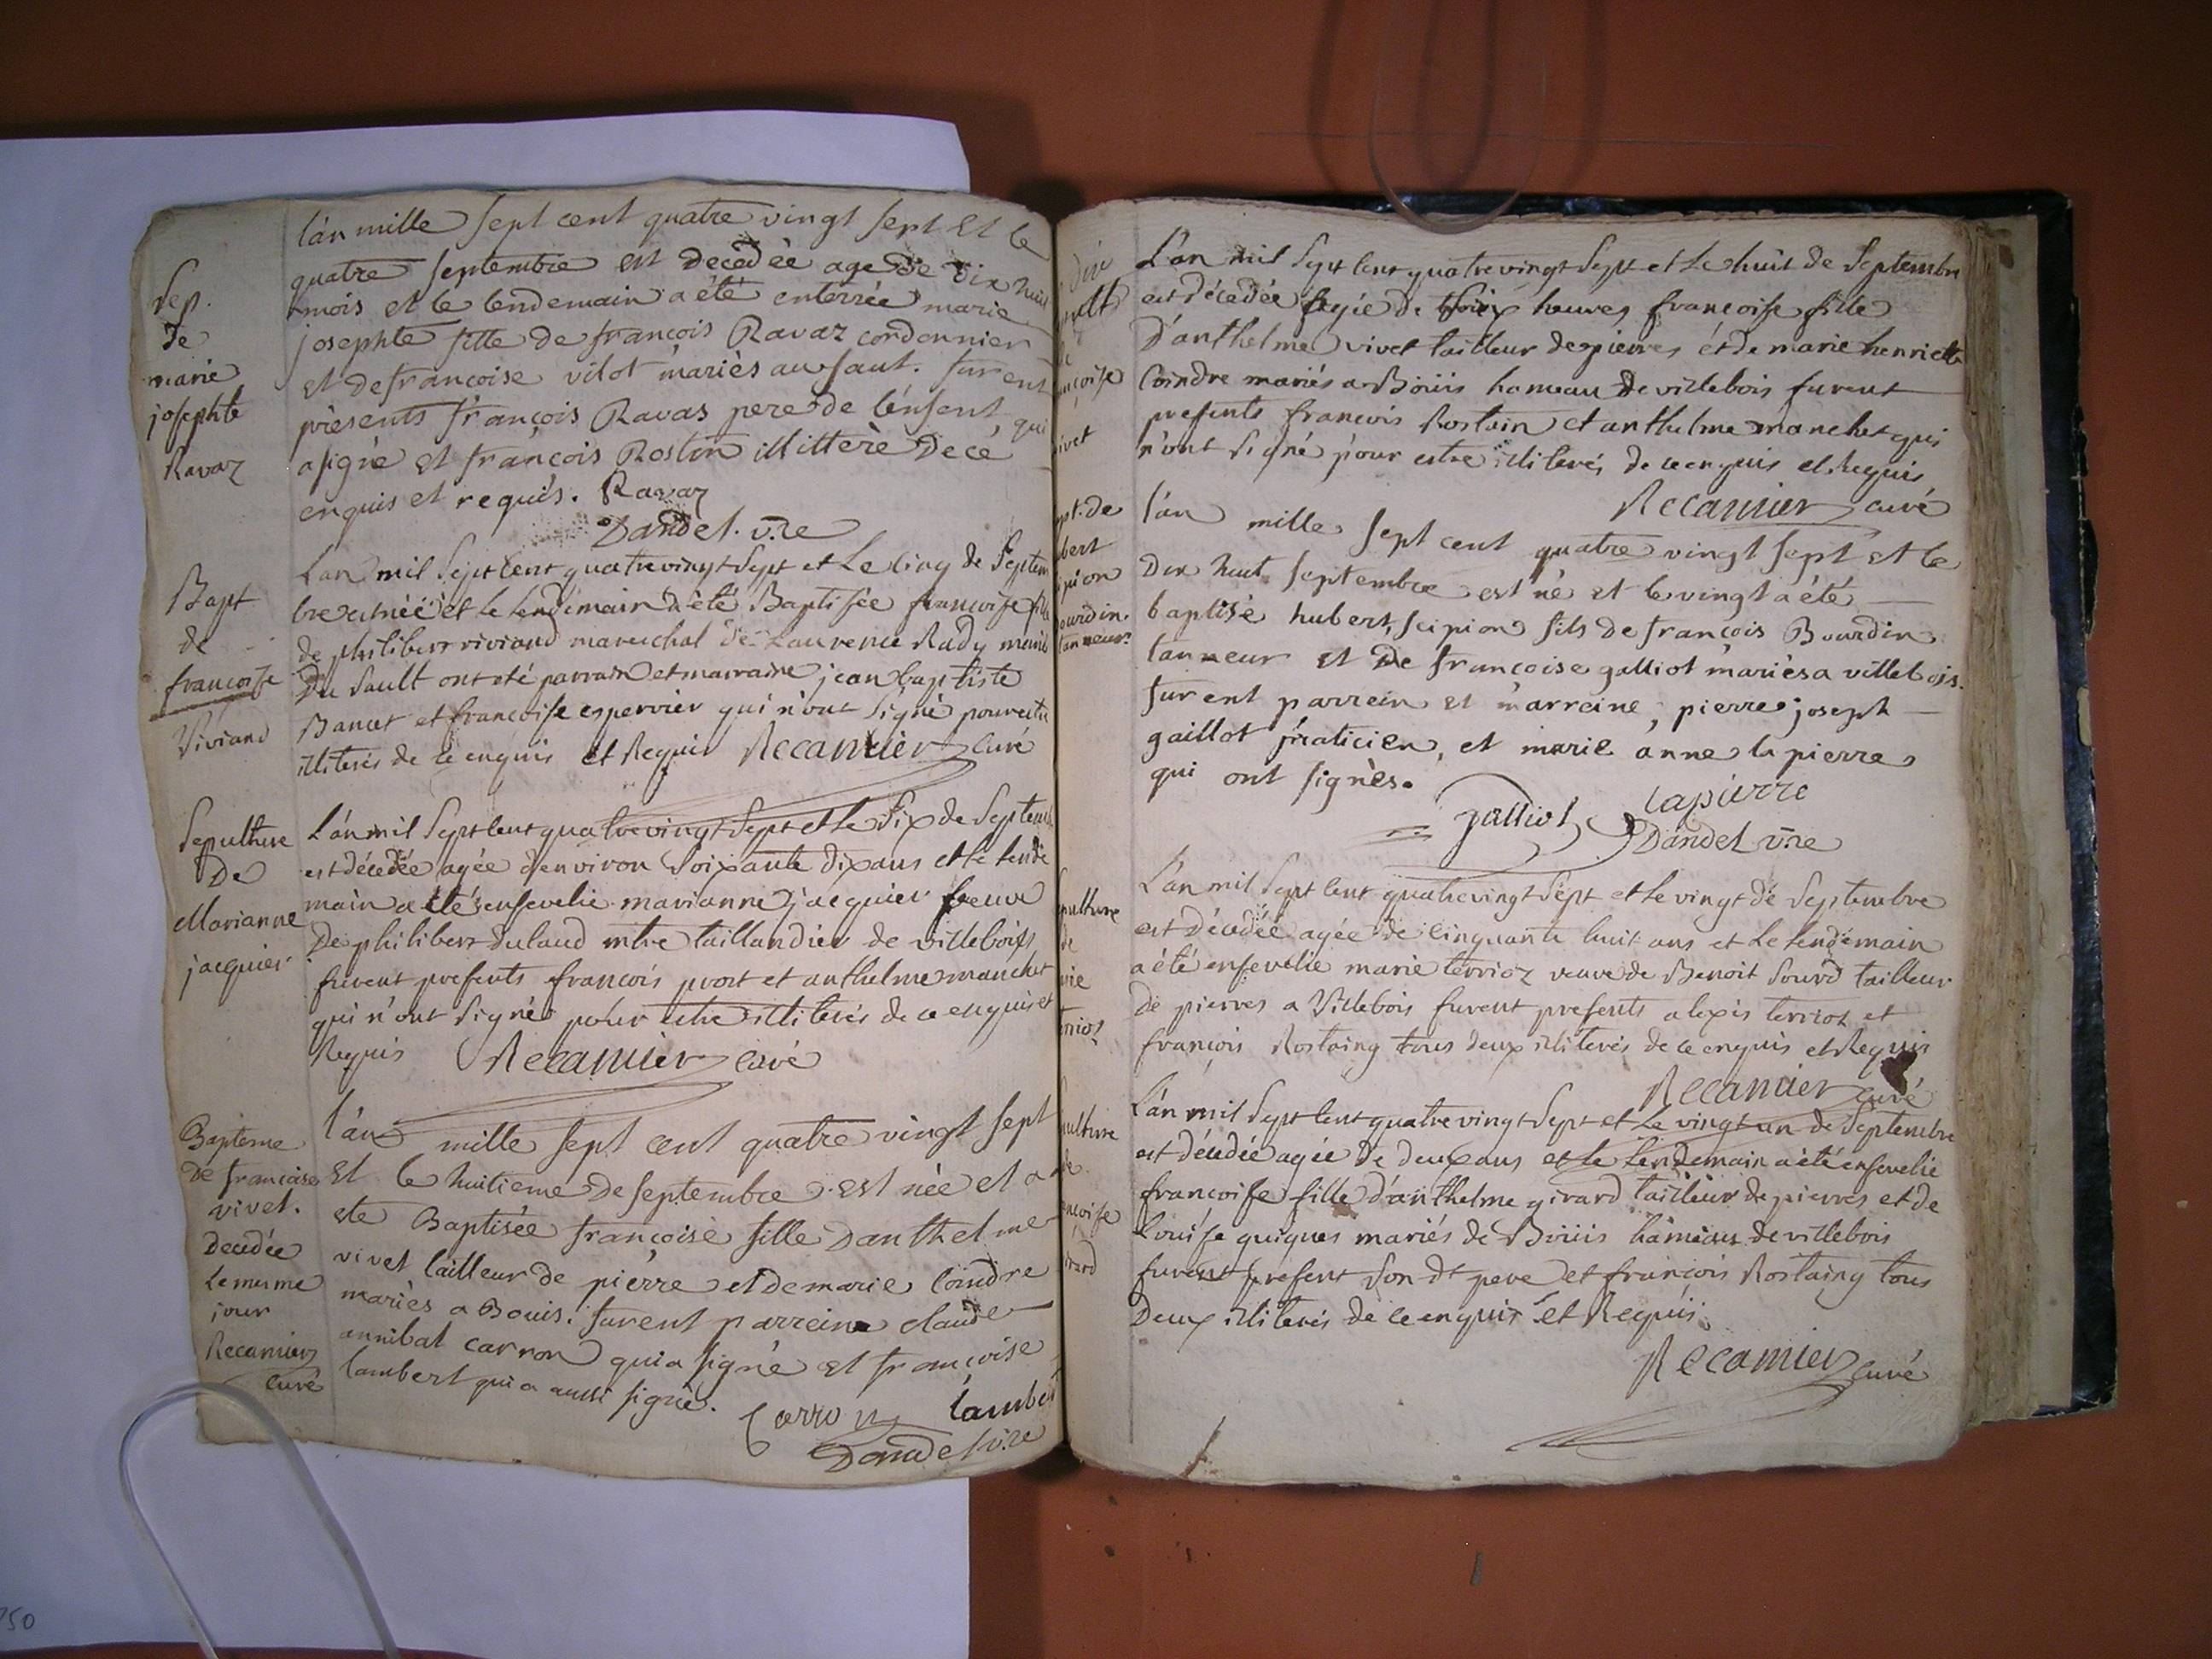 l'an mille sept cent quatre vingt sept Et le
quatre septembre est Decedèe age de dix huit
mois et le lendemain a été enterrée marie
josephte fille de françois Ravaz cordonnier
et de francoise vilot mariès au saut. furent
prèsents françois Ravas pere de l'enfent, qui
a signè et françois Rostin illittèrè De cé
enquis et requis. Ravaz
Dandel. v.re
Sep.
de
marie
josephte
Ravaz
L'an mil Sept Cent quatrevingt Sept et Le Cinq de Septem
bre est née et le lendemain a été Baptisée françoise fille
de philibert viviand marechal de Laurence Rudy mariés
Du Sault ont eté parrain et marraine jean baptiste
Bancet et francoise espervier qui n'ont Signé pour etre
illiterés de ce enquis et Requis Recamier Curé
Bapt
de
francoise
Viviand
L'an mil Sept Cent quatrevingt Sept et le Six de Septemb
est décedée agée d'environ Soixante dix ans et le lende
main a été ensevelie marianne jacquier veuve
De philibert dulaud mtre taillandier de villebois
furent presents françois prost et anthelme manchet
qui n'ont Signé pour estre illiterés de ce enquis et
Requis Recamier Curé
Sepulture
De
Marianne
jacquier
l'an mille sept cent quatre vingt sept
Et le huitieme de septembre est née et a
ete Baptisée françoise fille Danthelme
vivet tailleur de pièrre et de marie Coindre
mariès a Bouis. furent parrein claude
annibal carron qui a signè et françoise
lambert qui a aussi signè.
Carron lambert
Dandel v.re
Bapteme
de francoise
vivet.
Decedée
Le meme
jour
Recamier
Curé
L'an mil Sept Cent quatrevingt Sept et Le huit de Septembre
est décedée agée de heures françoise fille
D'anthelme vivet tailleur de pierres et de marie henriette
Coindre mariés a Boüis hameau de villebois furent
presents françois Rostain et anthelme manchet qui
n'ont Signé pour estre illiterés de ce enquis et Requis
Recamier curé
ivet
l'an mille sept cent quatre vingt sept et le
Dix huit septembre est nè et le vingt a été
baptisè hubert, scipion fils de françois Bourdin
tanneur et De françoise galliot mariès a villebois.
furent parrein et marreine, pierre joseph
gaillot praticien, et marie anne la pierre
qui ont signès.
galliot Lapierre
Dandel v.re
pt. de
bert
ipion
ourdin.
tanneur
L'an mil Sept Cent quatrevingt Sept et le vingt de Septembre
est décedée agée de Cinquante huit ans et le lendemain
a été ensevelie marie terrioz veuve de Benoit Sourd tailleur
de pierres a Villebois furent presents alexis terrioz et
françois Rostaing tous deux illiterés de ce enquis et Requis
Recamier curé
pulture
de
rie
rrioz
L'an mil Sept Cent quatre vingt Sept et Le vingt un de Septembre
est décedée agée De deux ans et le lendemain a été ensevelie
françoise fille d'anthelme girard tailleur de pierres et de
Louise guigues mariés de Boüis hameau de villebois
furent present Son dt pere et françois Rostaing tous
Deux illiterés de ce enquis et Requis
Recamier curé
pulture
de
ancoise
irard
750